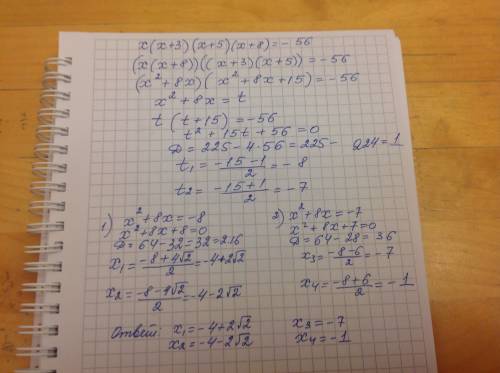 x(x+3)(x+5)(x+8)=-56
(x(x+8))((x+3)(x+5))=-56
(x²+8x)(x²+8x+15)=-56
x²+8x=t
t(t+15)=-56
t²+15t+56=0
D=225-4·56=225-224=1
t₁=(-15-1)/2=-8
t₂=(-15+1)/2=-7
1) x²+8x=-8
x²+8x+8=0
D=64-32=32=2·16
x₁=(-8+4√2)/2=-4+2√2
x₂=(-8-4√2)/2=-4-2√2
2) x²+8x=-7
x²+8x+7=0
D=64-28=36
x₃=(-8-6)/2=-7
x₄=(-8+6)/2=-1
Ответ: x₁=-4+2√2 x₃=-7
x₂=-4-2√2 x₄=-1